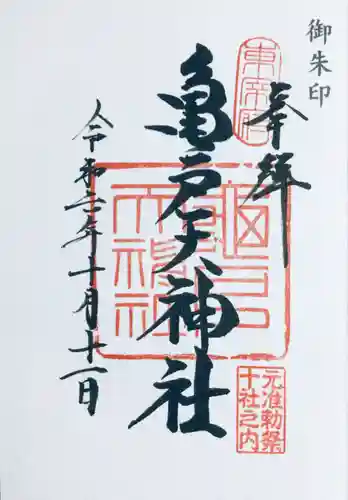 御朱印
奉拝
東宰府
亀戸天神社
元准勅祭
十社之内
令和三年十月十一日